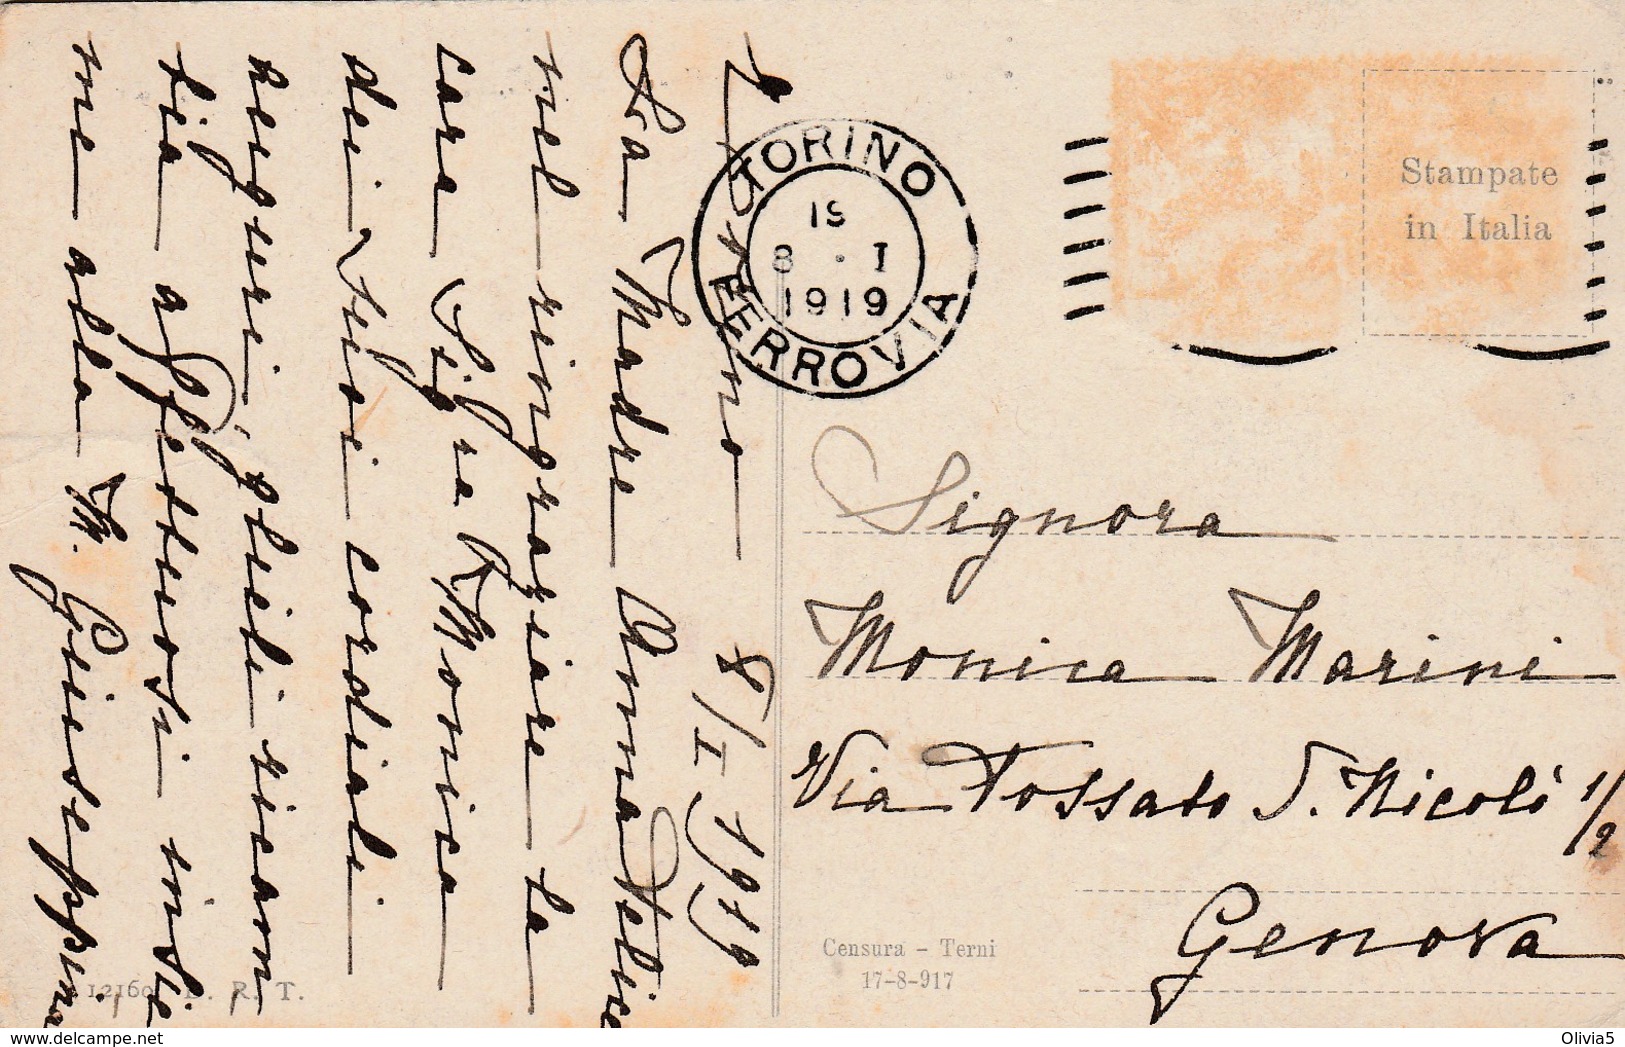 Torino 8/I 1919
La Madre Anna Felice
nel ringraziare la
cara Sig.ra Monica
dei suoi cordiali
auguri, glieli ricam
bia affettuosi insie
me alla M. Giuseppina
TORINO
FERROVIA
8 · I
1919
Stampate
in Italia
Signora
Monica Marini
Via Fossato S. Nicolò 1/2
Genova
Censura – Terni
17-8-917
12160 R. T.
delcampe.net
Olivia5